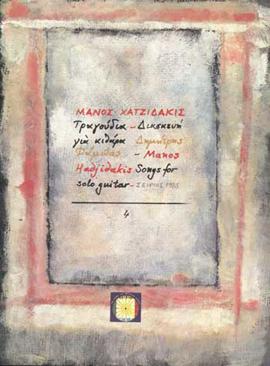 ΜΑΝΟΣ ΧΑΤΖΙΔΑΚΙΣ
Τραγούδια - Διασκευή
γιὰ κιθάρα Δημήτρης
Φάμπας - Manos
Hadjidakis Songs for
solo guitar - ΣΕΙΡΙΟΣ 1985
4